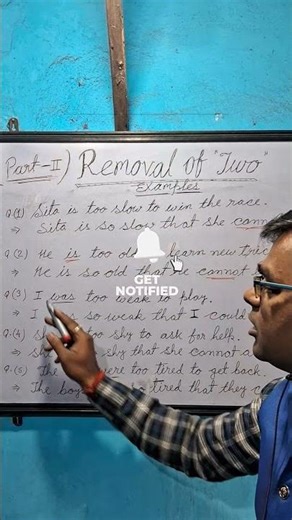 Part-II) Removal of "Two"
Examples
Q.(1) Sita is too slow to win the race.
⇒ Sita is so slow that she
Q.(2) He is too old learn new
⇒ He is so old that he cannot
GET
NOTIFIED
Q.(3) I was too weak to play.
⇒ I so weak that I could
Q.(4) too shy to ask for help.
shy that she cannot
Q.(5) The were too tired to get back.
⇒ The boy tired that they